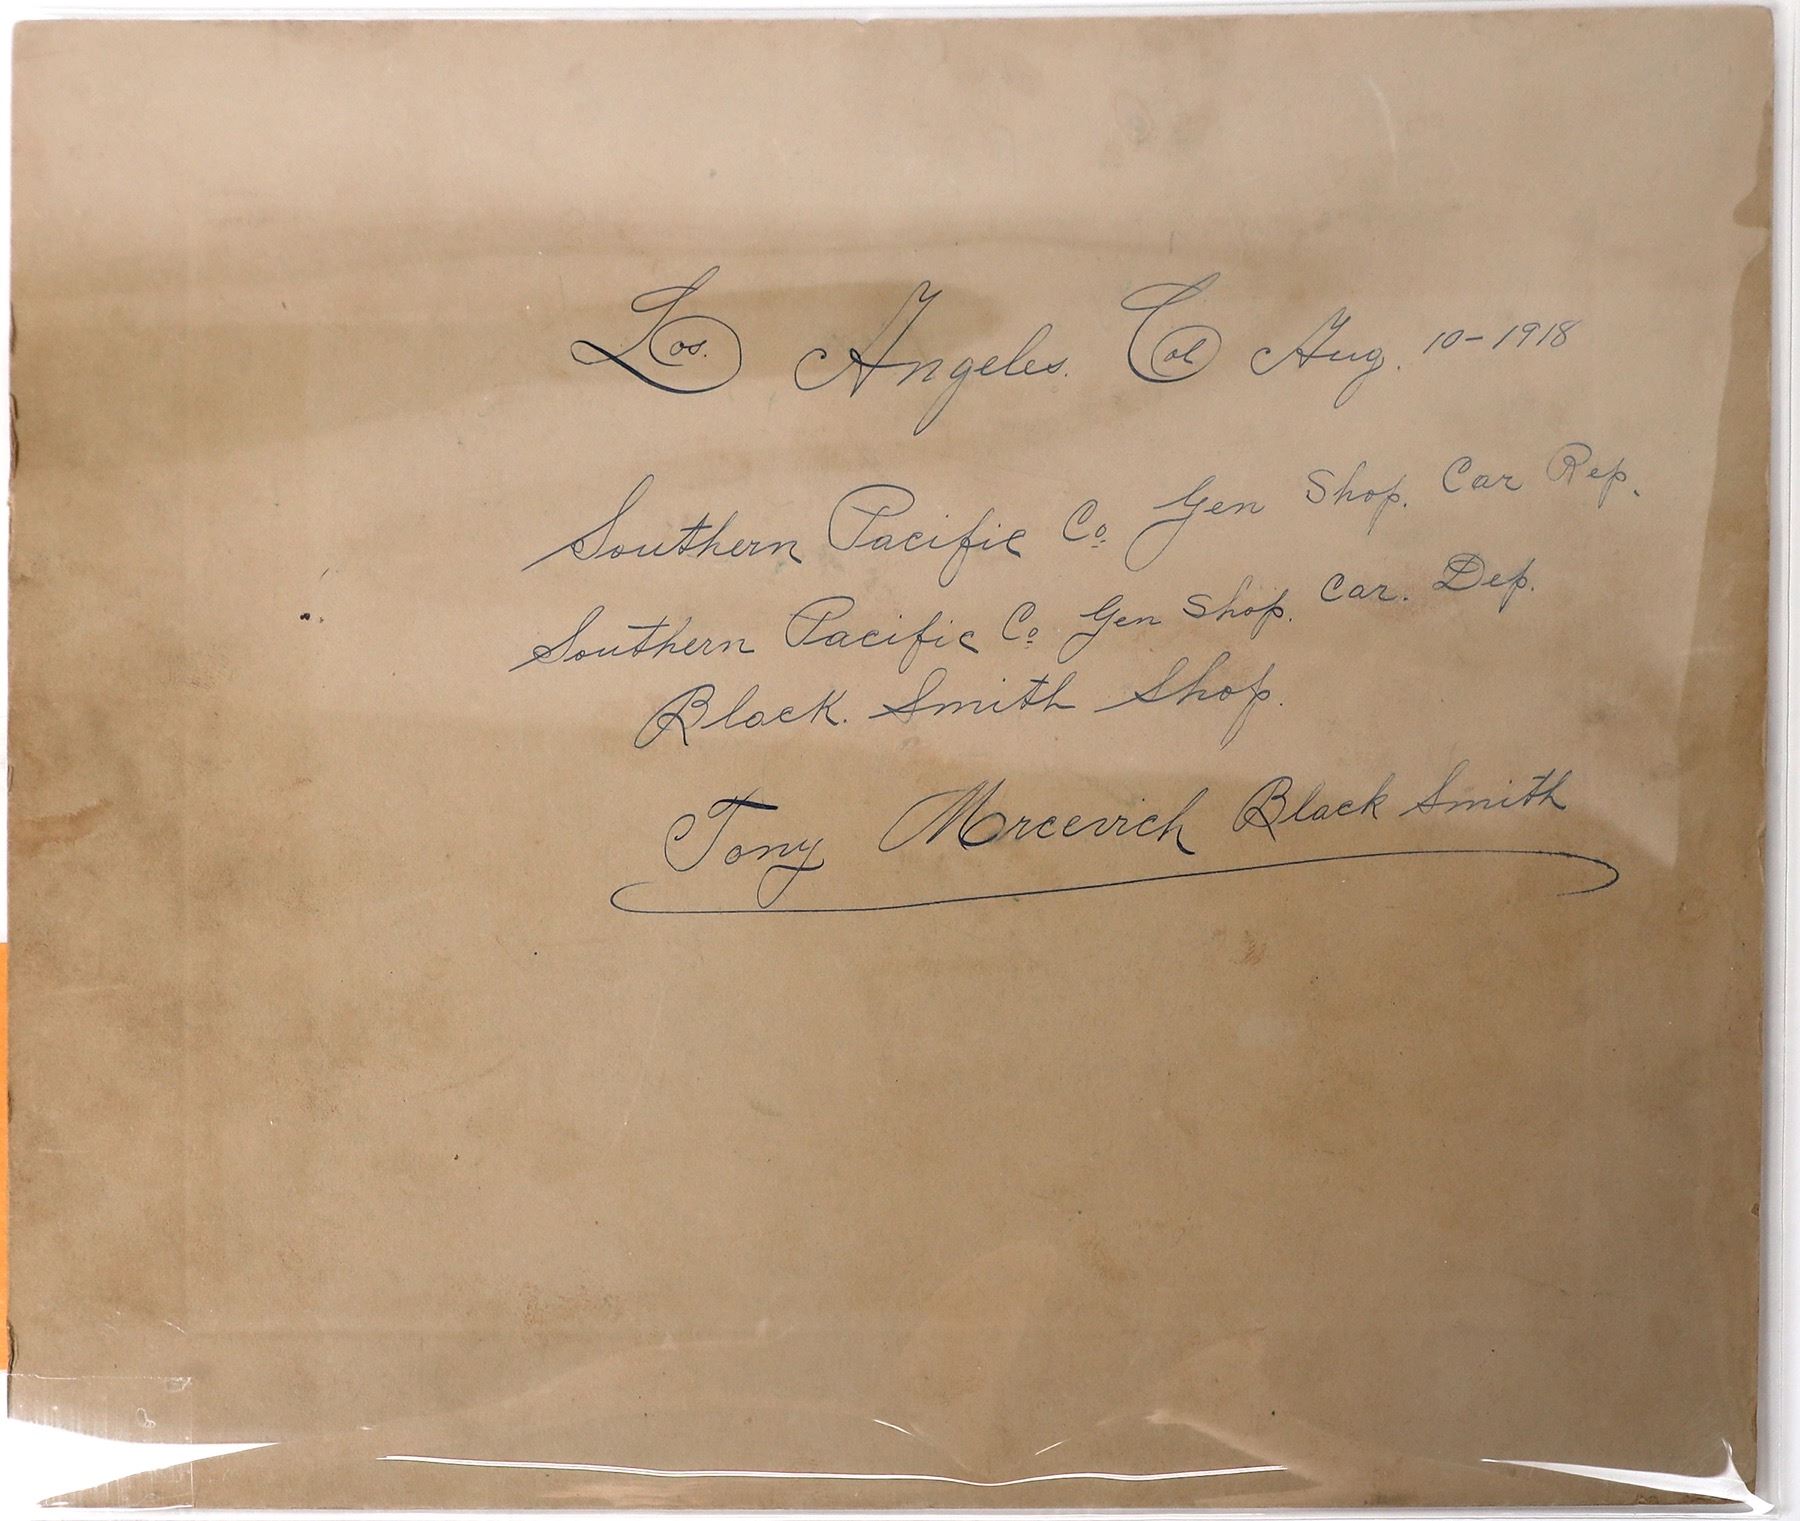 Los. Angeles. Cal Aug. 10-1918
Southern Pacific Co. Gen Shop. Car Rep.
Southern Pacific Co. Gen Shop. Car. Dep.
Black. Smith Shop.
Tony Mrcevich Black Smith